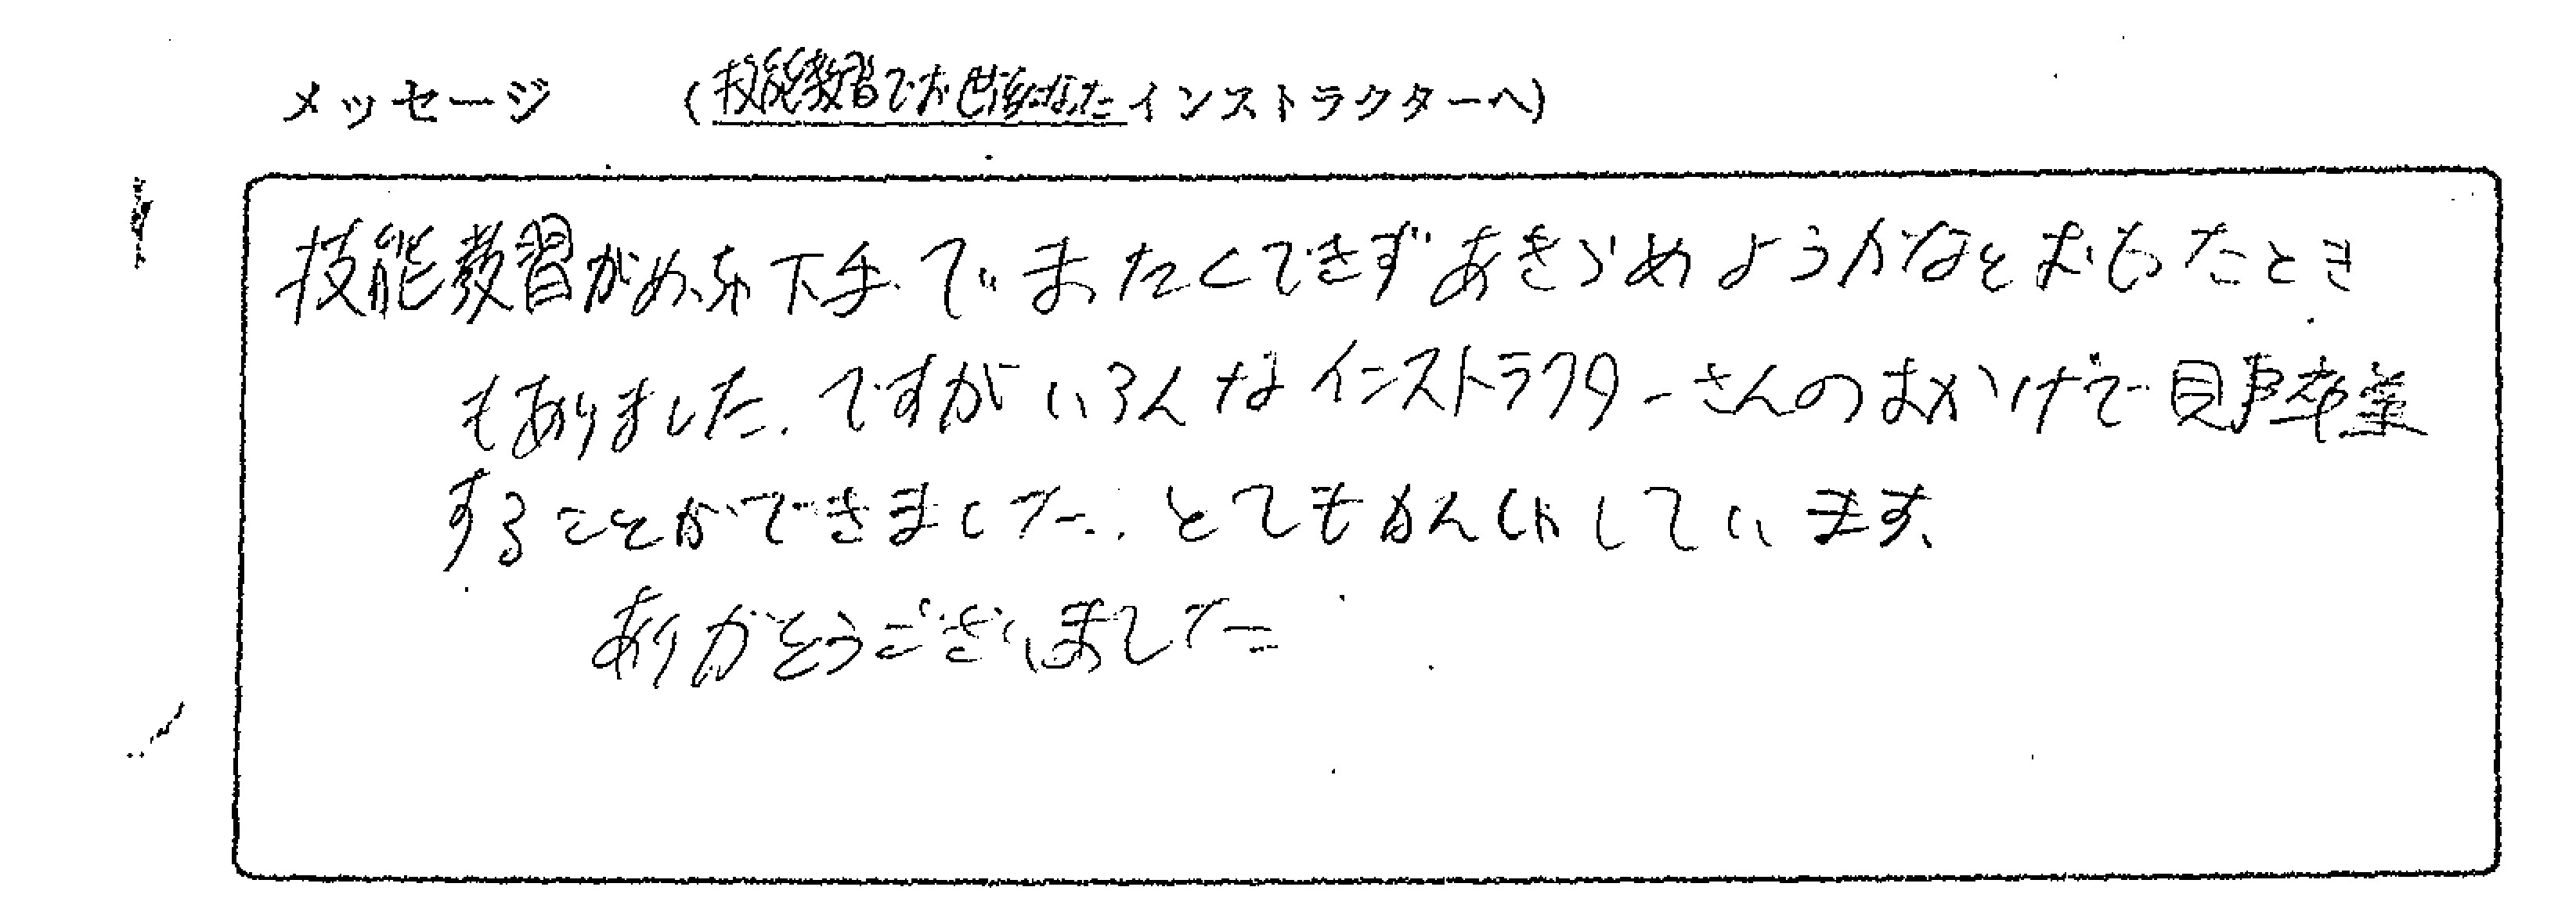 メッセージ (技能教習でお世話になったインストラクターへ)
技能教習がめっちゃ下手でまったくできずあきらめようかなとおもったとき
もありました。ですがいろんなインストラクターさんのおかげで見事卒業
することができました。とてもかんしゃしています。
ありがとうございました